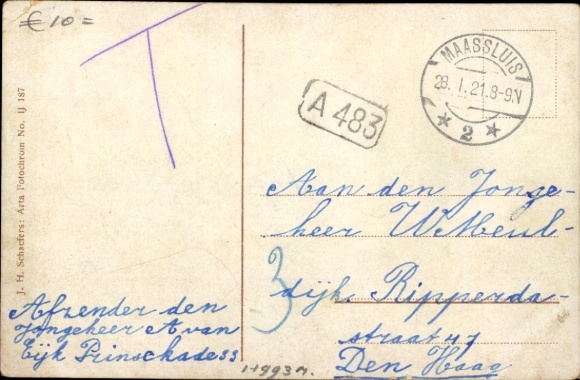 € 10=
T
J. H. Schaefers: Arta Fotochrom No. IJ 187
A 483
MAASSLUIS
28. 1. 21. 8-9N
2
Aan den Jonge-
heer W Meul-
dijk Ripperda-
straat 47
Den Haag
3
Afzender den
Jongeheer A van
Eijk Prinschade 33